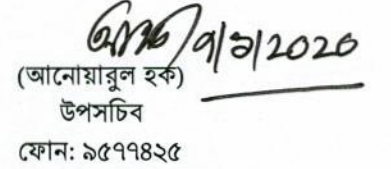 ৭/৯/2020
(আনোয়ারুল হক)
উপসচিব
ফোন: ৯৫৭৭৪২৫